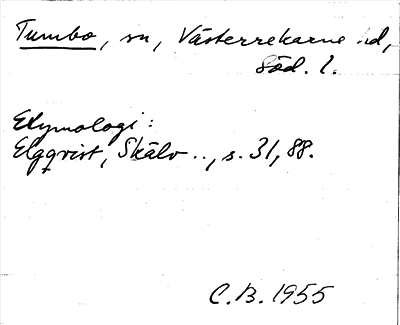 Tumbo, sn, Västerrekarne hd,
Söd. l.
Etymologi:
Elgqvist, Skälv .., s. 31, 88.
C.B. 1955